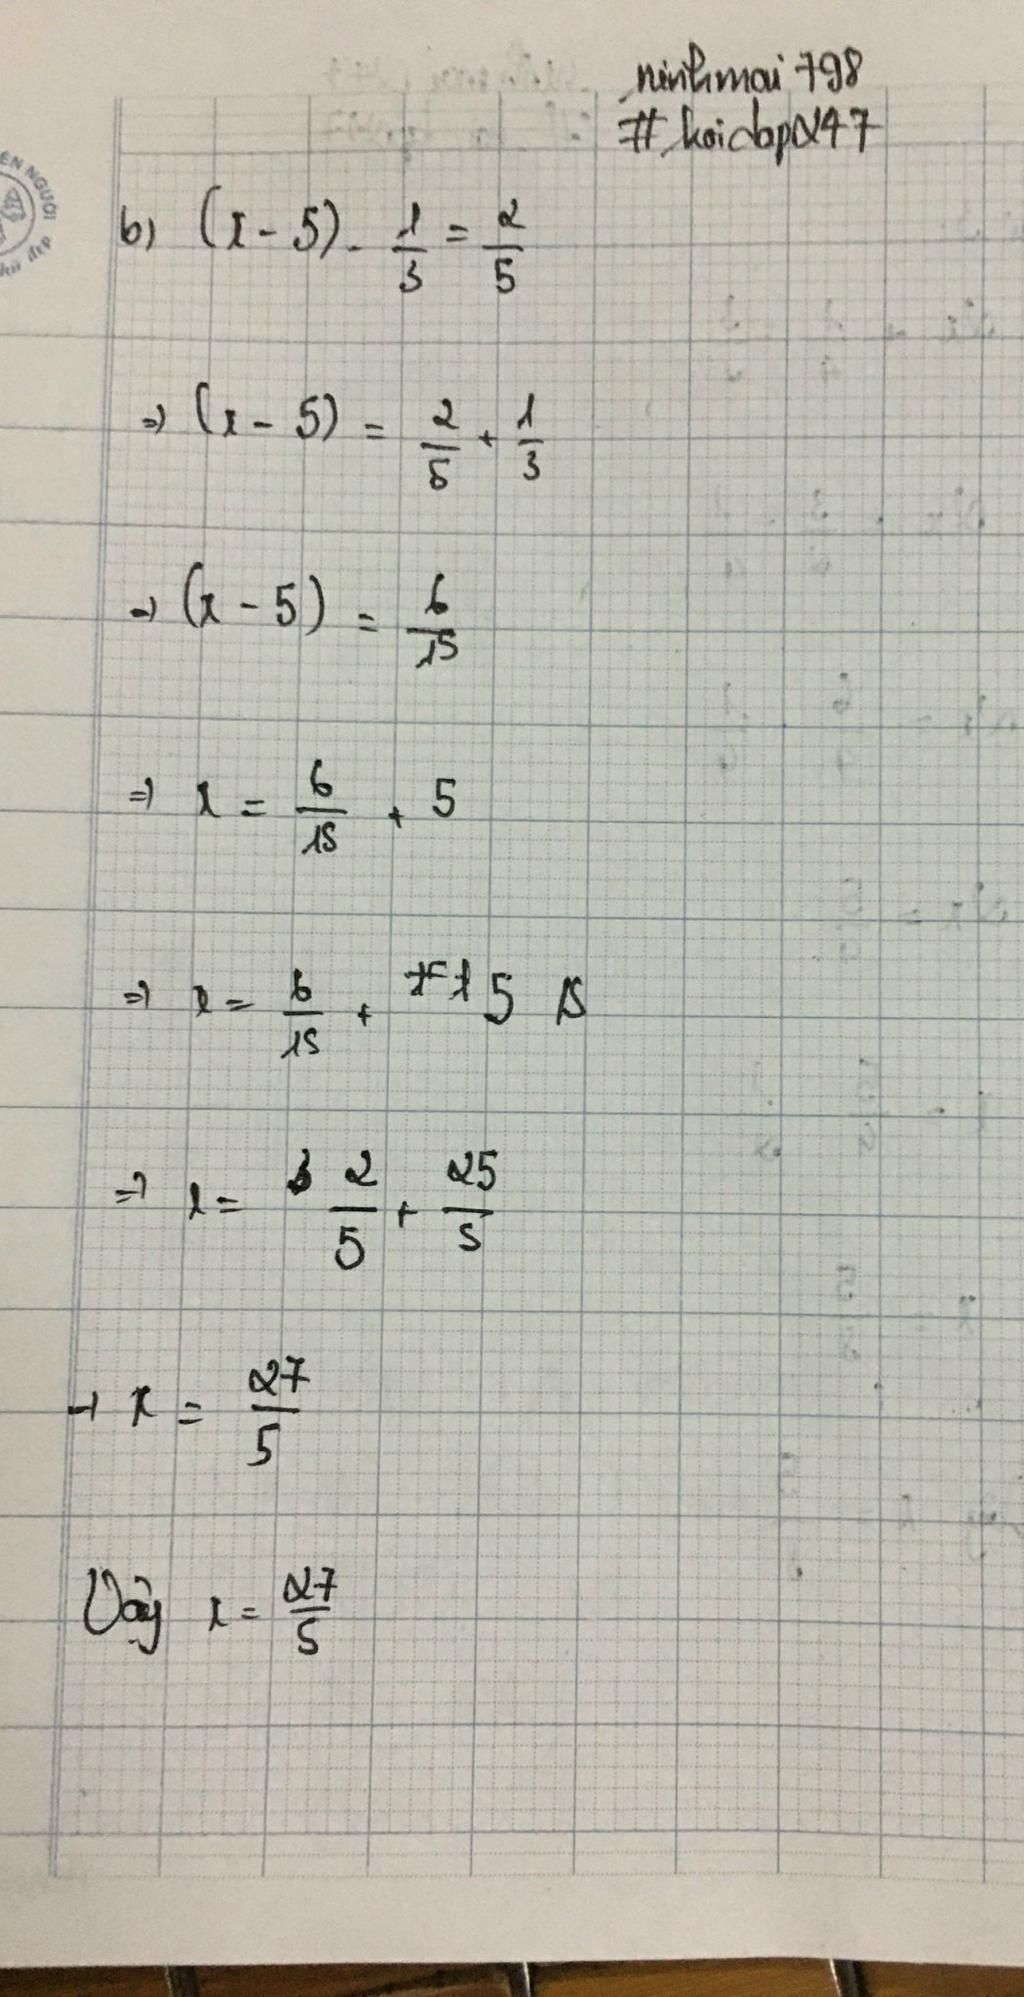 ninhmai798
#hoidap247
EN NGƯỜI
đẹp
b) (x - 5) - 1/3 = 2/5
=> (x - 5) = 2/5 + 1/3
=> (x - 5) = 6/15
=> x = 6/15 + 5
=> x = 6/15 + 5 15
=> x = 2/5 + 25/5
=> x = 27/5
Vậy x = 27/5